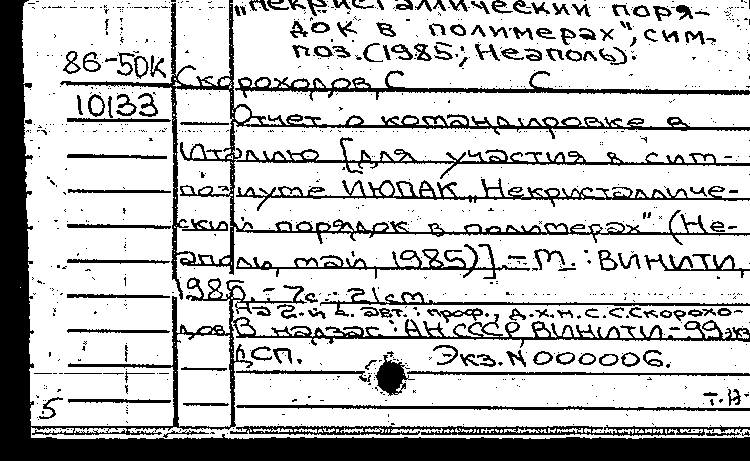 „Некристаллический поря-
док в полимерах", сим-
поз. (1985; Неаполь).
86-50К
Скороходов, С С
10133
Отчет о командировке в
Италию [для участия в сим-
позиуме ИЮПАК „Некристалличе-
ский порядок в полимерах" (Не-
аполь, май, 1985)]. - М. : ВИНИТИ,
1985. - 7с. ; 21см.
На 2.й л. авт. : проф., д.х.н. С.С.Скорохо-
дов. В надзаг. : АН СССР, ВИНИТИ. - 99 экз
ДСП. Экз. N 000006.
5